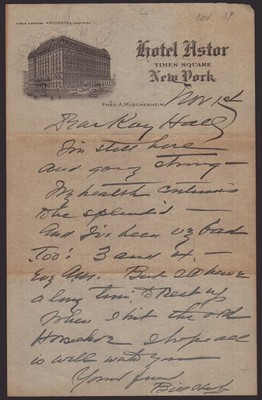 Nov 39
CABLE ADDRESS
Hotel Astor
TIMES SQUARE
New York
FRED. A. MUSCHENHEIM
Nov 1st
Dear Ray Hall
I'm still here
and going strong —
My health continues
to be splendid —
And I've been up had
too. 3 and 4.
But I'll have
a long time to rest up
When I hit the old
I hope all
is well with you
Your friend